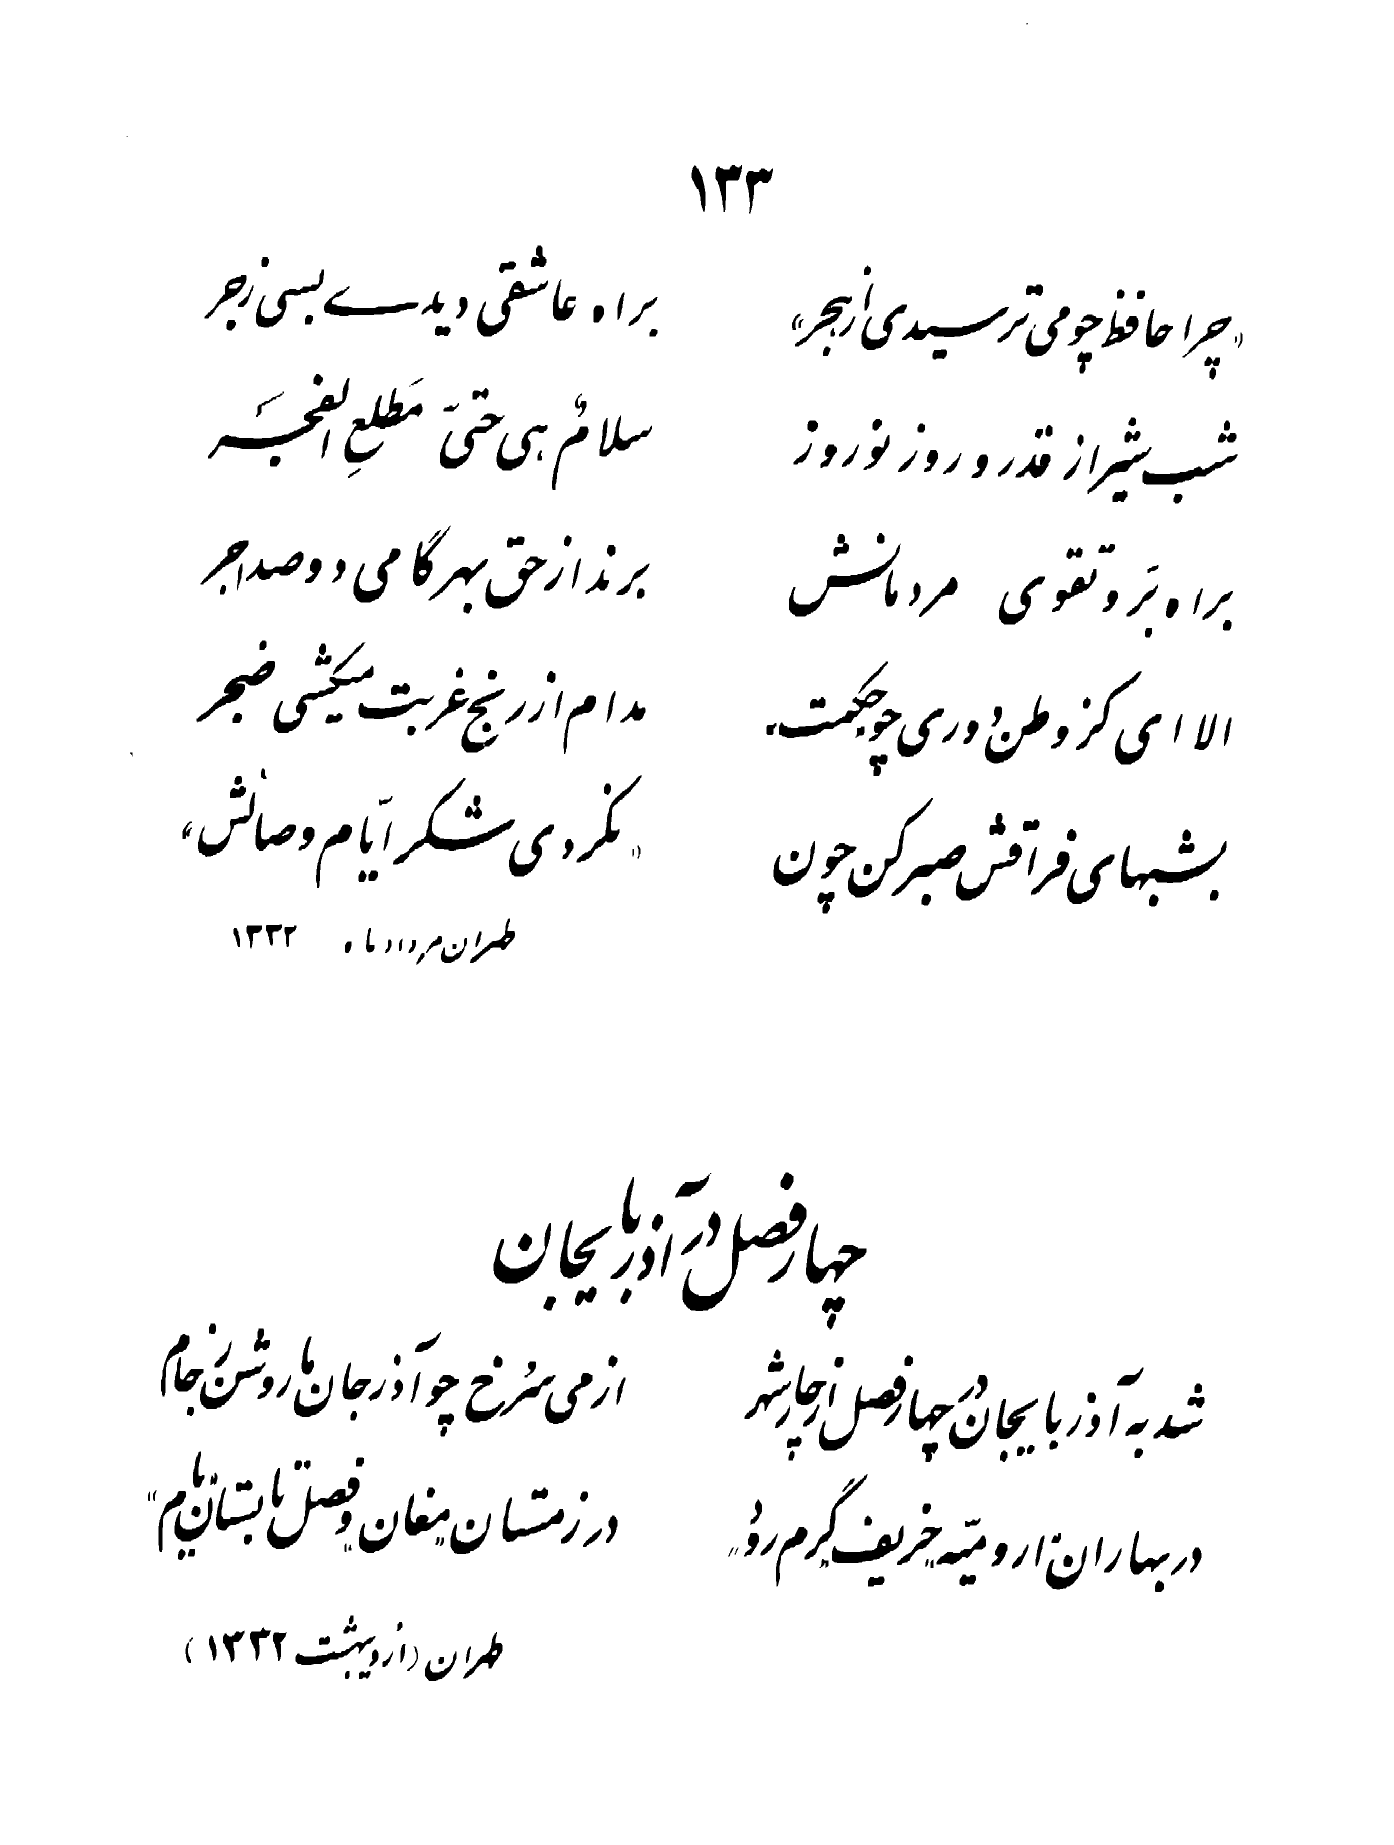 ۱۳۳
«چرا حافظ چو می ترسیدی از هجر» براه عاشقی دیدے بسی زجر
شب شیراز قدر و روز نوروز سلامٌ هی حتیّ مَطلعِ الفجَر
براه بَر و تقوی مردمانش برند از حق بهر گامی دو صد اجر
الا ای کز وطن دوری چو حکمت مدام از رنج غربت میکشی ضجر
بشبهای فراقش صبر کن چون «نکردی شکر ایّام وصالش»
طهران مرداد ماه ۱۳۳۲
چهار فصل در آذربایجان
شد به آذربایجان در چهار فصل از چار شهر از می سُرخ چو آذر جان ما روشن ز جام
در بهاران ارومیّه خریف گرم رُود در زمستان مغان و فصل تابستان بام
طهران (اردیبهشت ۱۳۳۲)